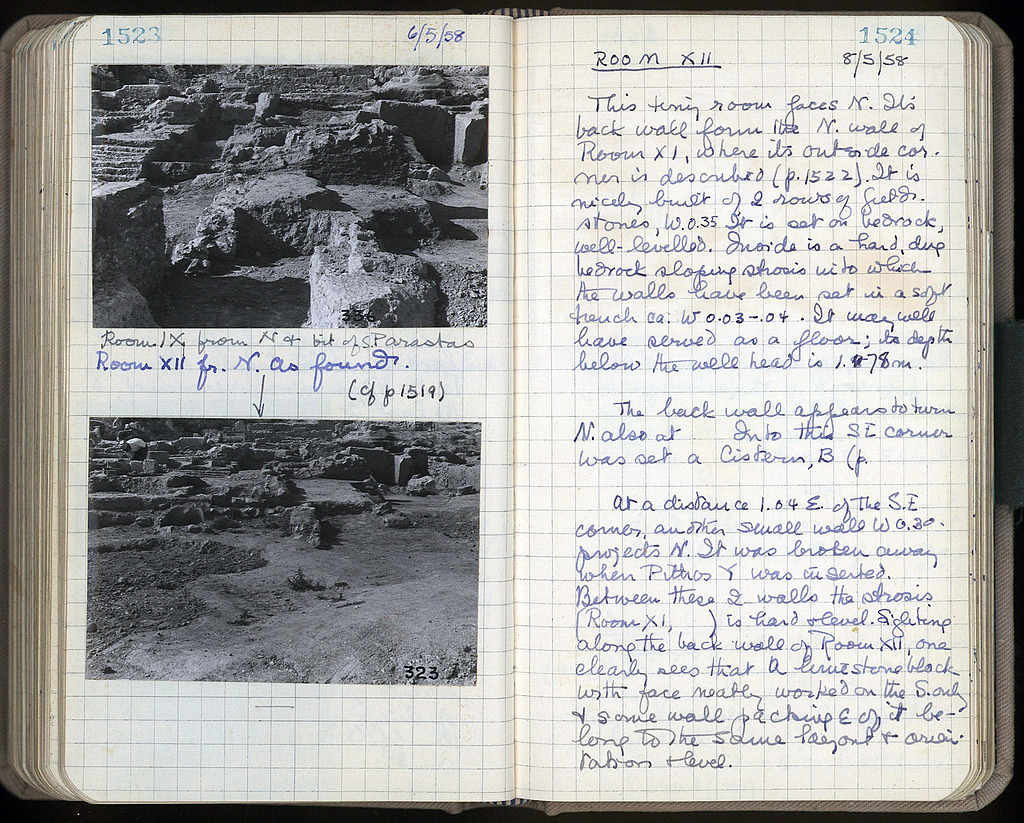 1523
6/5/58
336
Room IX from N + bit of S. Parastas
Room XII fr. N. As found.
(cf p 1519)
323
1524
ROOM XII
8/5/58
This tiny room faces N. Its
back wall form the N. wall of
Room XI, where its outside cor-
ner is described (p. 1522). It is
nicely built of 2 rows of field-
stones, W. 0.35 It is set on bedrock,
well-levelled. Inside is a hard, dug
bedrock sloping strosis into which
the walls have been set in a soft
trench ca. W 0.03-.04. It may well
have served as a floor; its depth
below the well head is 1.78m.
The back wall appears to turn
N. also at Into this SE corner
was set a Cistern, B (p.
At a distance 1.04 E. of the S.E
corner, another small wall W 0.30
projects N. It was broken away
when Pithos Y was inserted.
Between these 2 walls the strosis
(Room XI, ) is hard + level. Sighting
along the back wall of Room XII, one
clearly sees that a limestone block
with face neatly worked on the S. only
+ some wall packing E of it be-
long to the same layout + orien-
tation + level.